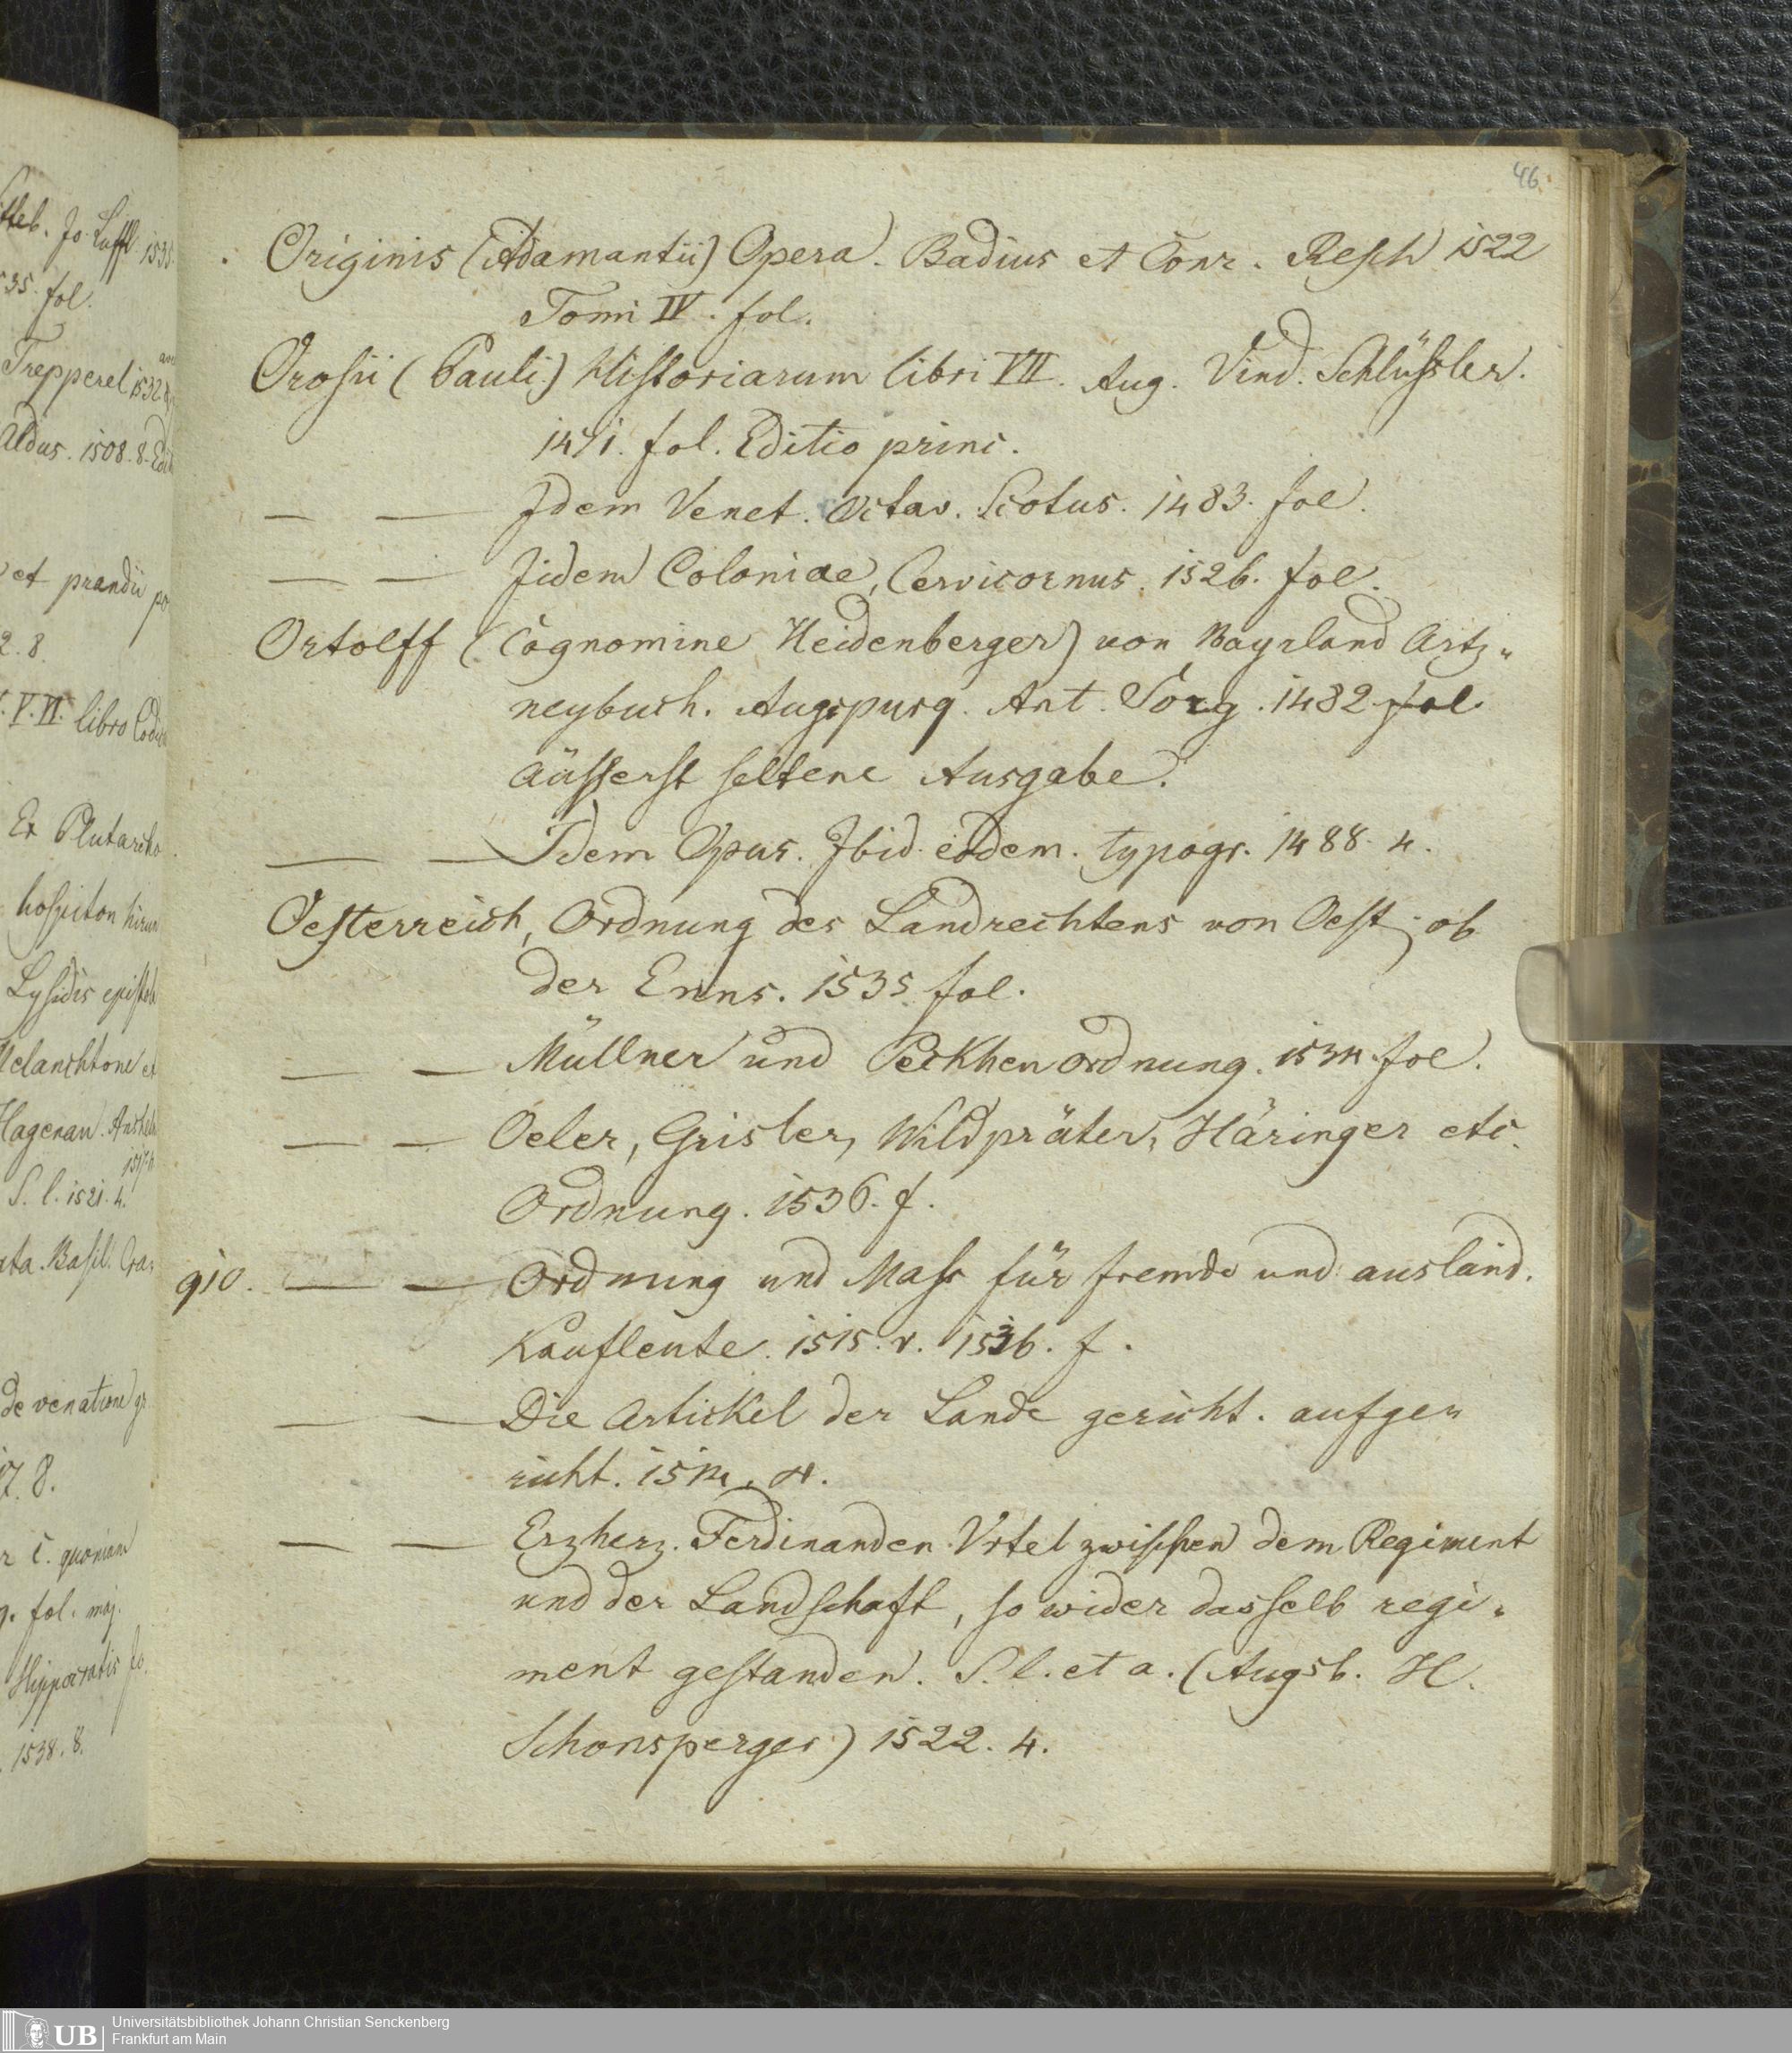 46.
Originis (Adamantii) Opera. Badius et Conr. Resch 1522
Tomi IV. fol.
Orosii (Pauli) Historiarum libri VII. Aug. Vind. Schlüssler.
1471. fol. Editio princ.
— — Idem Venet. Octav. Scotus. 1483. fol.
— — Iidem Coloniae, Cervicornus. 1526. fol.
Ortolff (Cognomine Heidenberger) von Bayrland Artz„
neybuch. Augspurg. Ant. Sorg. 1482 fol.
äüsserst seltene Ausgabe.
— — Idem Opus. Ibid. eodem. typogr. 1488. 4.
Oesterreich, Ordnung des Landrechtens von Oest. ob
der Enns. 1535. fol.
— — Müllner und Peckhenordnung. 1534. fol.
— — Oeler, Grisler, Wildpräter, Häringer etc.
Ordnung. 1536. f.
910. — — Ordnung und Mass für fremde und ausländ.
Kaufleute. 1515. v. 1536. f.
— — Die Artickel der Lande gericht. aufge„
richt. 1514. 4.
— — Erzherz. Ferdinanden Vrtel zwischen dem Regiment
und der Landschaft, so wider dasselb regi„
ment gestanden. S. l. et a. (Augsb. H.
Schonsperger) 1522. 4.
Jo. Lufft 1535.
35. fol.
Trepperel. 1532
Aldus. 1508. 8.
et prandii
2. 8.
V. VI. libro
Ex Plutarcho
Lysidis
Melanchtone et
Hagenau.
S. l. 1521. 4.
Basil.
de venatione
17. 8.
quoniam
fol. maj.
Hippocratis
1538. 8.
UB
Universitätsbibliothek Johann Christian Senckenberg
Frankfurt am Main